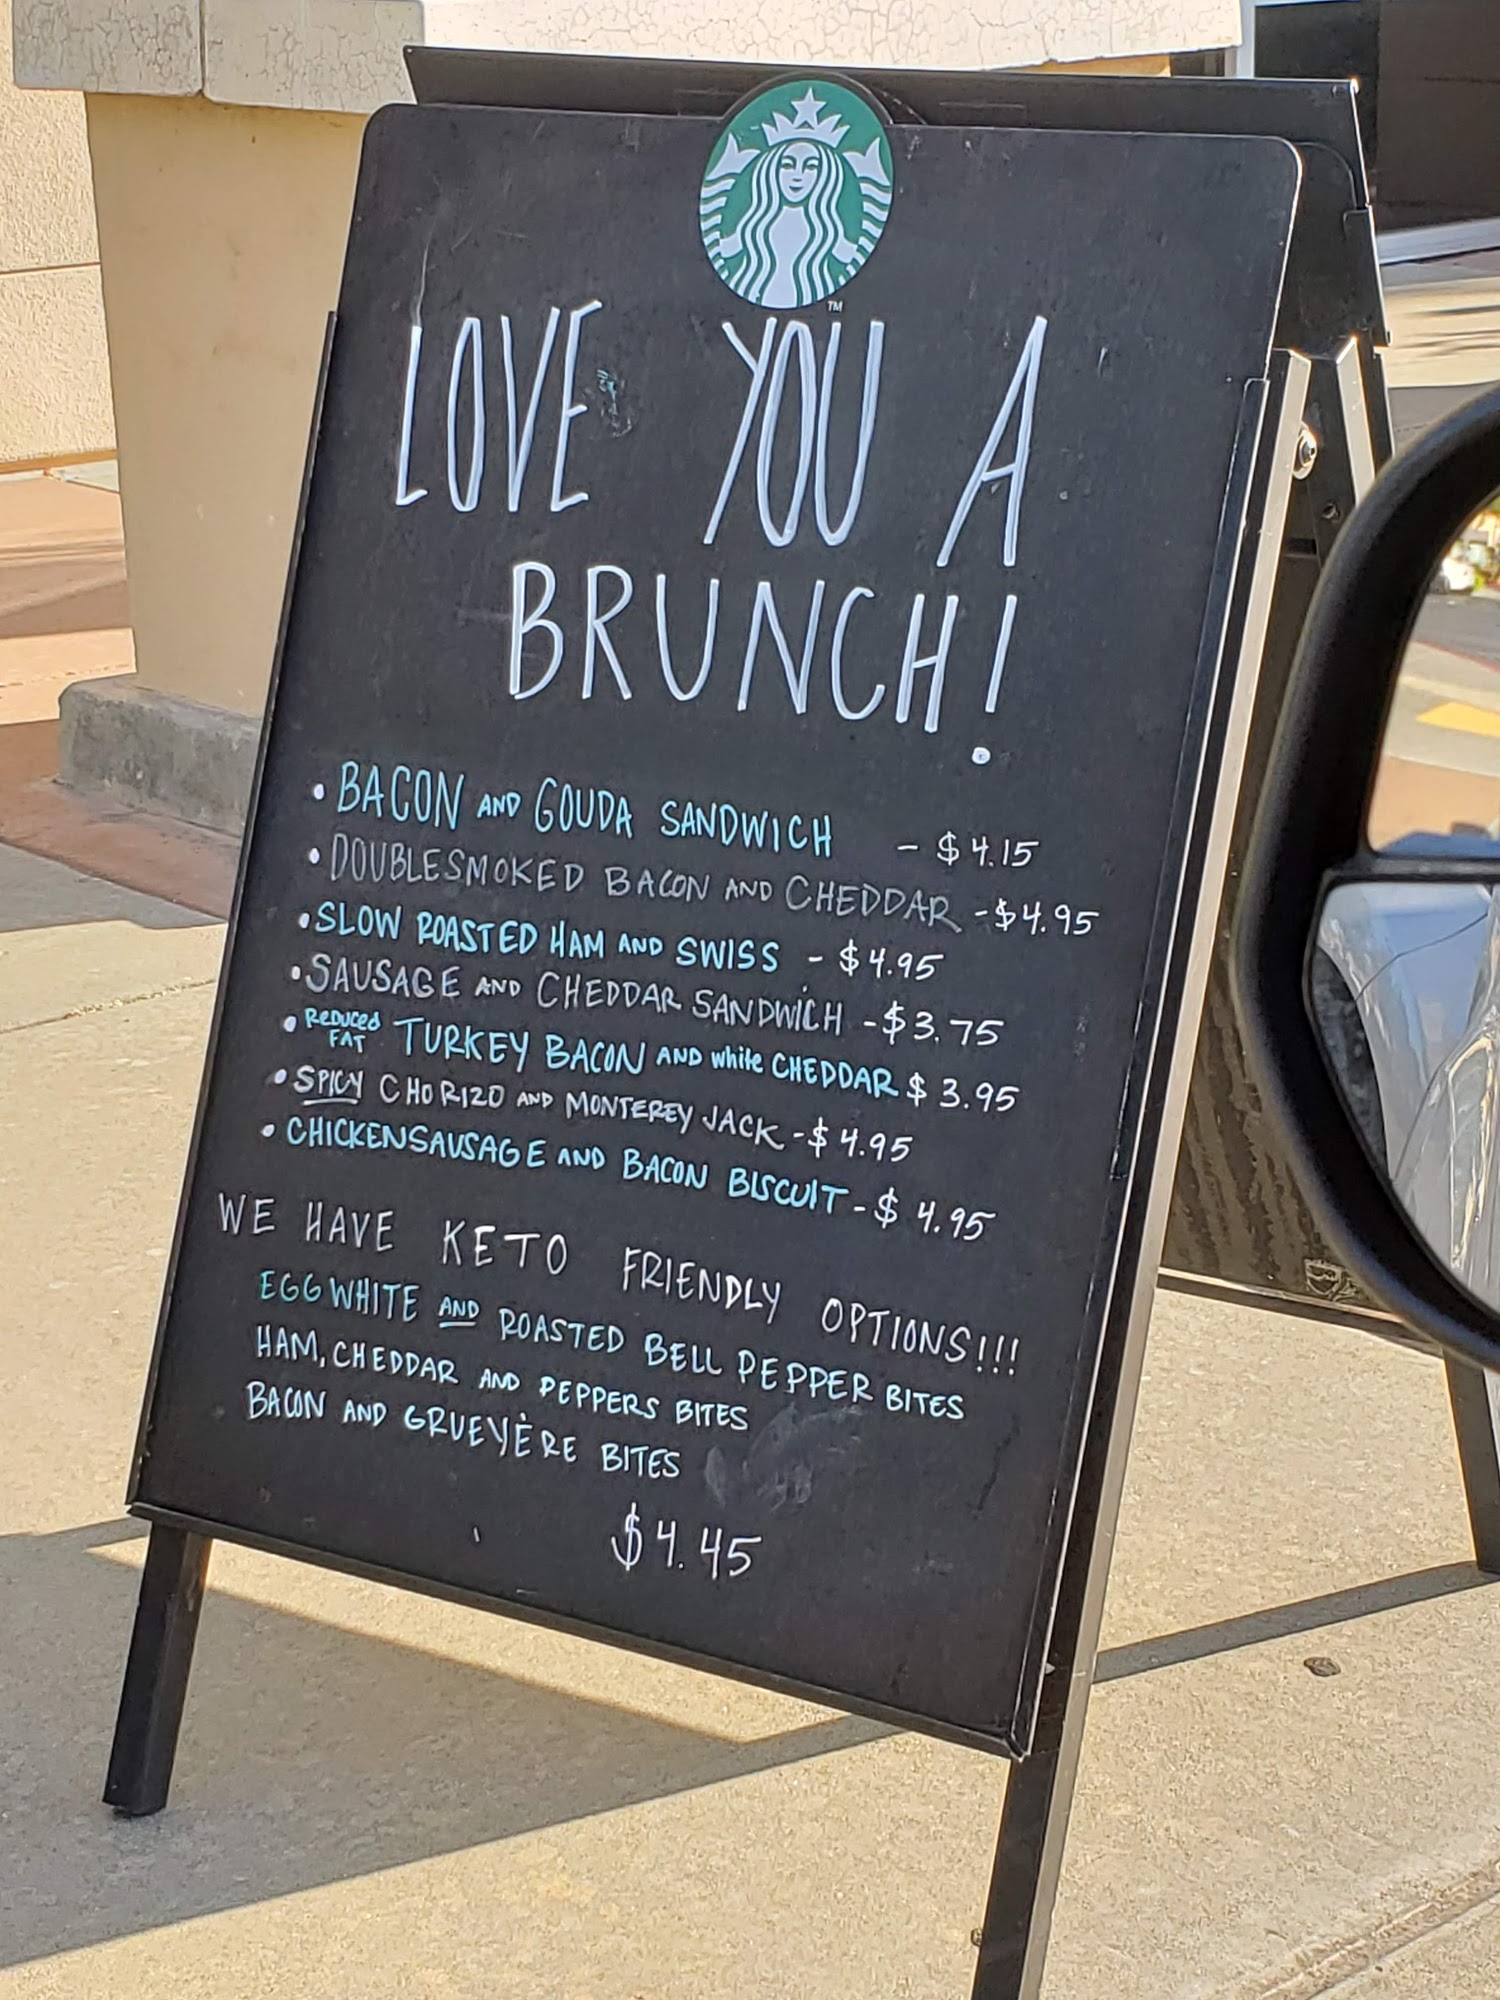 TM
LOVE YOU A
BRUNCH!
• BACON AND GOUDA SANDWICH - $4.15
• DOUBLESMOKED BACON AND CHEDDAR - $4.95
• SLOW ROASTED HAM AND SWISS - $4.95
• SAUSAGE AND CHEDDAR SANDWICH - $3.75
• REDUCED FAT TURKEY BACON AND white CHEDDAR $3.95
• SPICY CHORIZO AND MONTEREY JACK - $4.95
• CHICKENSAUSAGE AND BACON BISCUIT - $4.95
WE HAVE KETO FRIENDLY OPTIONS!!!
EGG WHITE AND ROASTED BELL PEPPER BITES
HAM, CHEDDAR AND PEPPERS BITES
BACON AND GRUEYÈRE BITES
$4.45